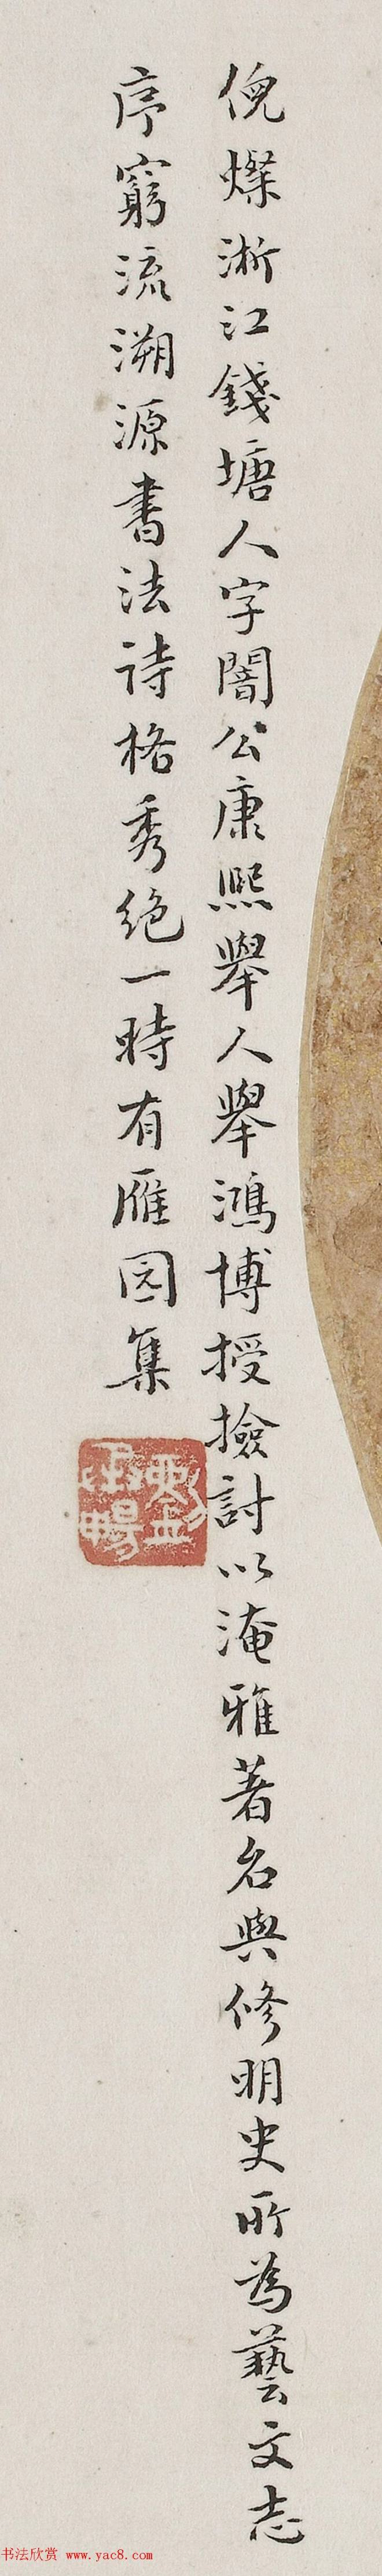 倪燦淅江錢塘人字闇公康熙舉人舉鴻博授撿討以淹雅著名與修明史所為藝文志
序窮流溯源書法詩格秀絕一時有雁园集
书法欣赏 www.yac8.com